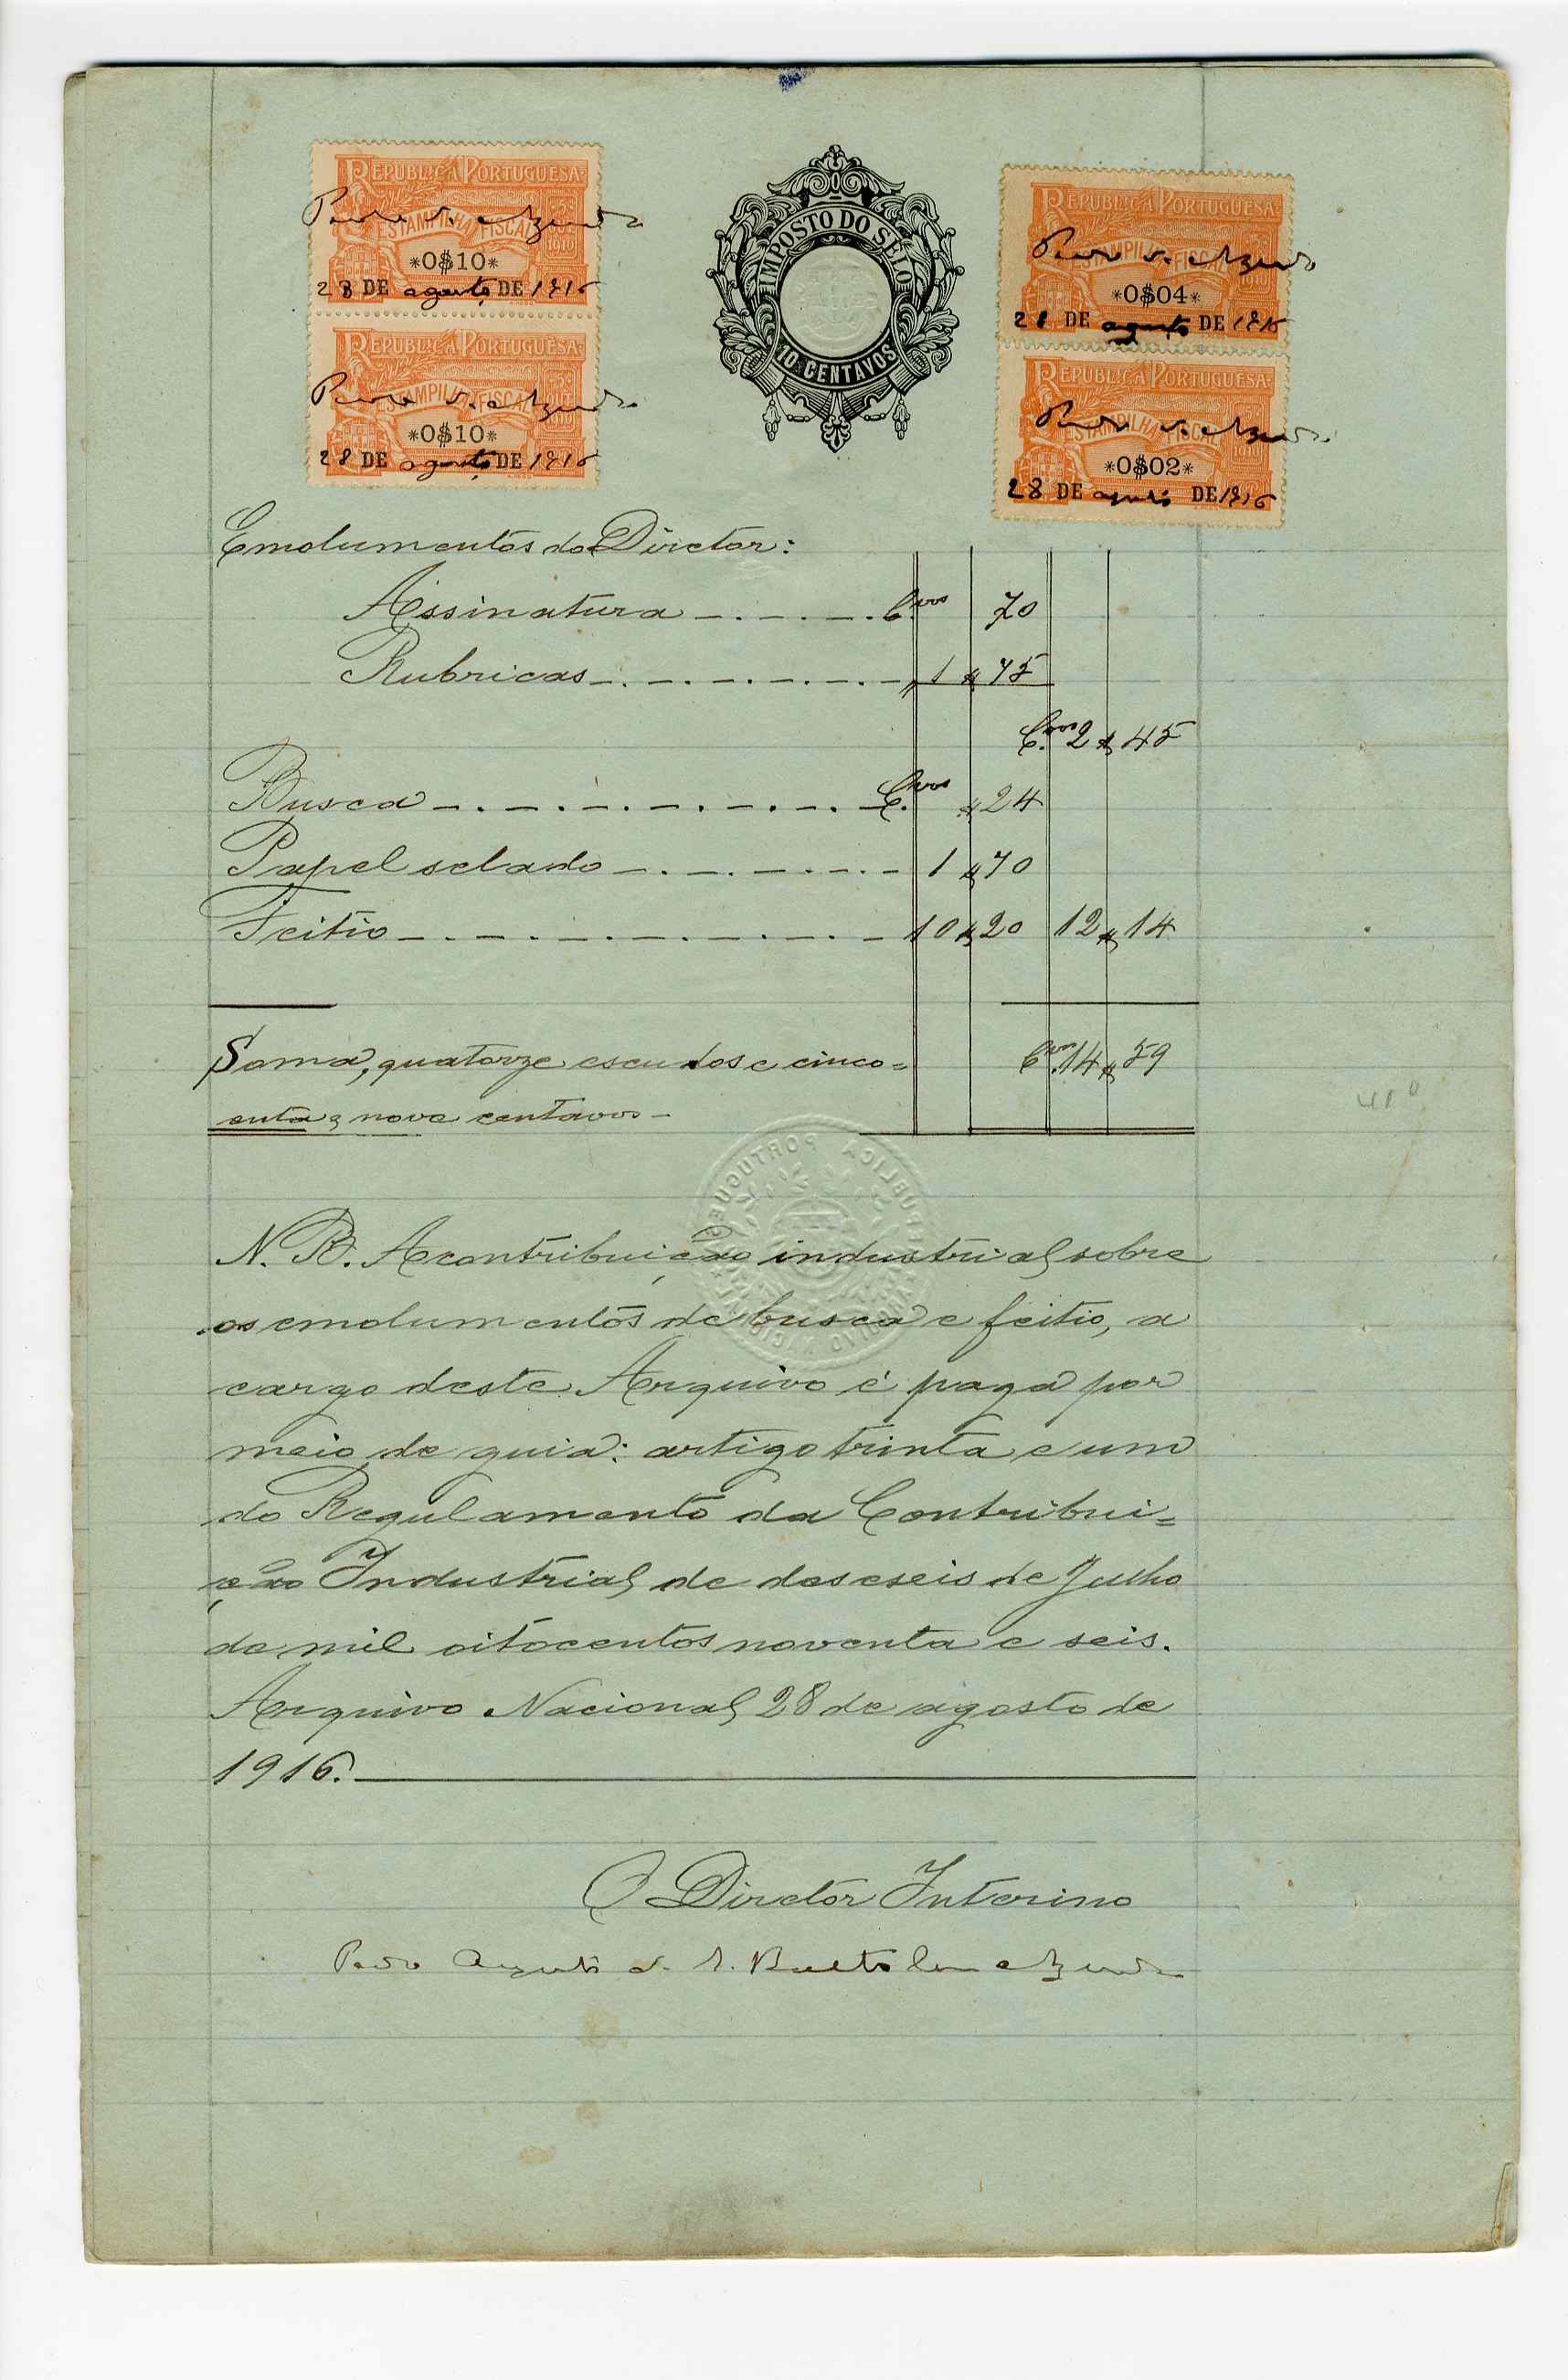 REPUBLICA PORTUGUESA
ESTAMPILHA FISCAL
1910
*0$10*
28 DE agosto DE 1916
REPUBLICA PORTUGUESA
ESTAMPILHA FISCAL
1910
*0$10*
28 DE agosto DE 1916
IMPOSTO DO SELO
10 CENTAVOS
REPUBLICA PORTUGUESA
ESTAMPILHA FISCAL
1910
*0$04*
28 DE agosto DE 1916
REPUBLICA PORTUGUESA
ESTAMPILHA FISCAL
1910
*0$02*
28 DE agosto DE 1916
Emolumentos do Director:
Assinatura — . — . — . C.vos 70
Rubricas — . — . — . — . — . — 1 $ 75
C.vos 2 $ 45
Busca — . — . — . — . — . — . — C.vos $ 24
Papel selado — . — . — . — . — 1 $ 70
Feitio — . — . — . — . — . — . — 10 $ 20 12 $ 14
Soma, quatorze escudos e cinco= 14 $ 59
enta e nove centavos —
REPUBLICA PORTUGUESA
N. B. A contribuição industrial sobre
os emolumentos de busca e feitio, a
cargo deste Arquivo é paga por
meio de guia: artigo trinta e um
do Regulamento da Contribui=
ção Industrial de deseseis de Julho
de mil oitocentos noventa e seis.
Arquivo Nacional, 28 de agosto de
1916.
O Director Interino
Pedro Augusto de S. Bartolomeu Azevedo